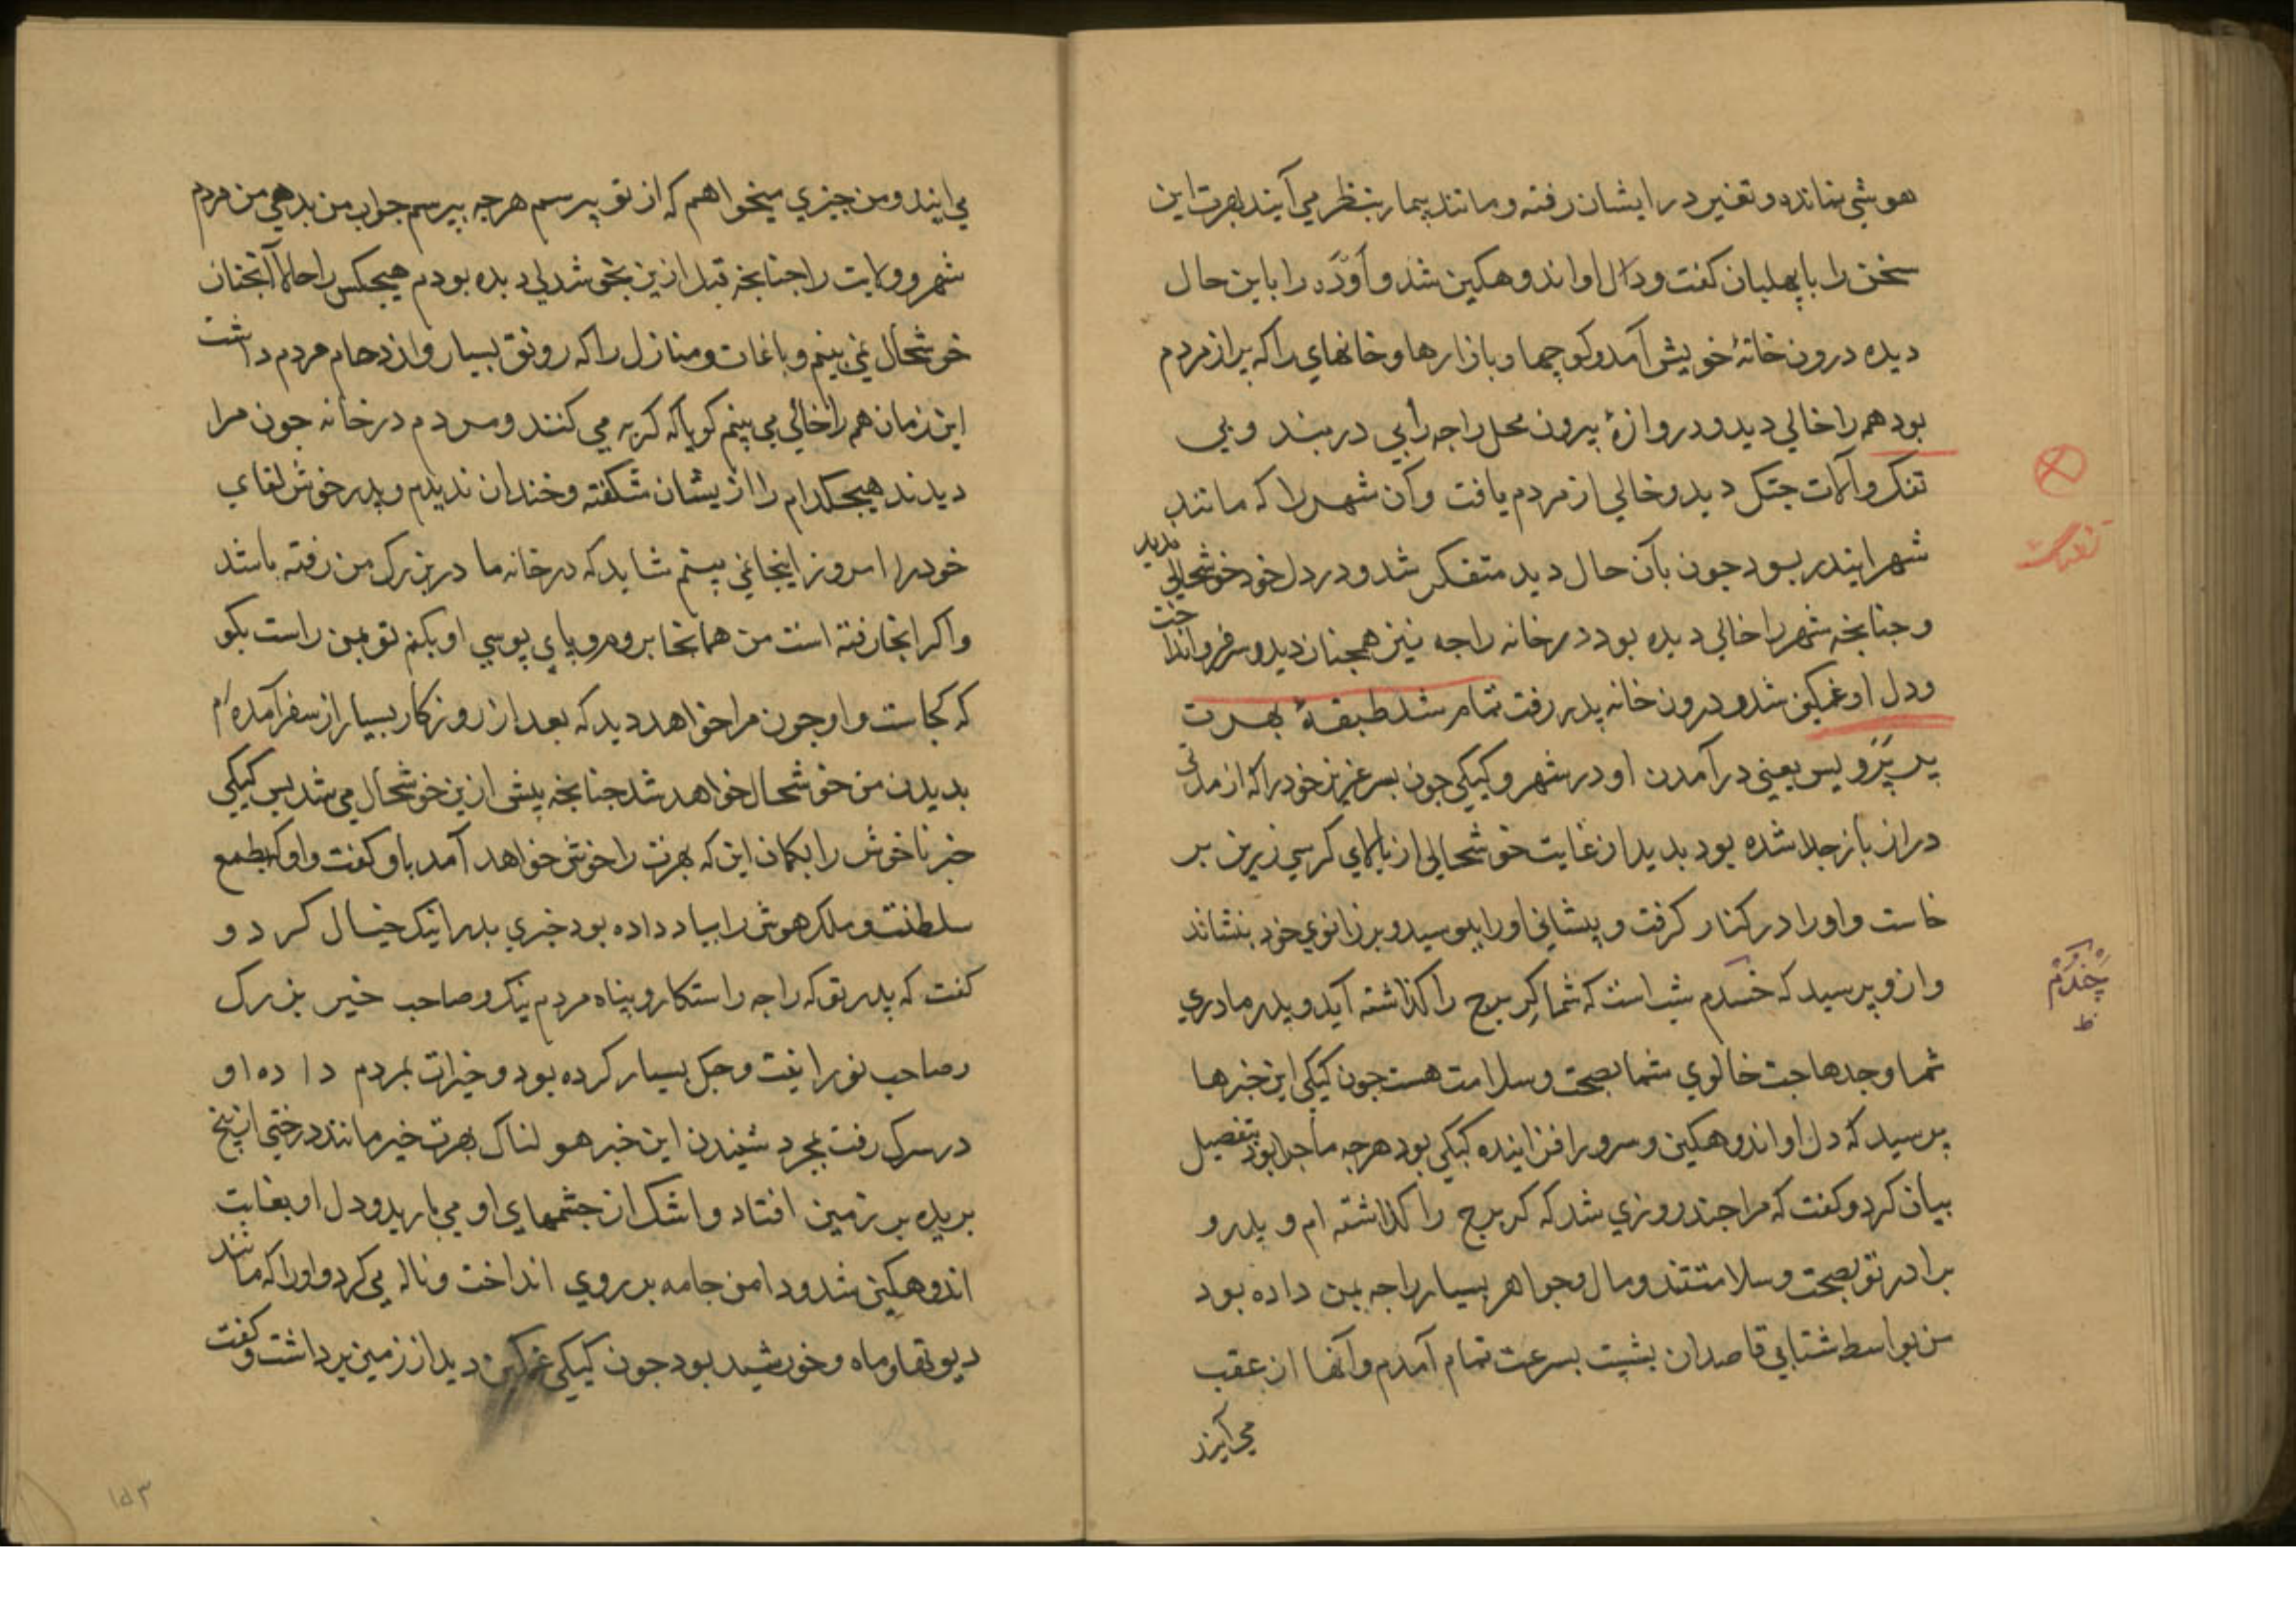 هوشي نمانده و تغير در ايشان رفته و مانند بيمار بنظر مي آيند بهرت اين
سخن را با بهلبان كفت و دل او اندوهكين شد و آوده را باين حال
ديده درون خانهٔ خويش آمد و كوچها و بازارها و خانهاي را كه پر از مردم
بود هم را خالي ديد و دروازهٔ بيرون محل راجه را بي دربند و بي
تفنك و آلات جنك ديد و خالي از مردم يافت و آن شهر را كه مانند
شهر ايندر بود جون بآن حال ديد متفكر شد و در دل خود خوشحالي نديد
و جنانجه شهر را خالي ديده بود در خانه راجه نيز همجنان ديد و سر فرو انداخت
و دل او غمكين شد و درون خانه پدر رفت تمام شد طبقهٔ بهرت
پر پرويس يعني در آمدن او در شهر و كيكي جون پسر عزيز خود را كه از مدتي
دراز باز جدا شده بود بديد از غايت خوشحالي از بالاي كرسي زرين بر
خاست و او را در كنار كرفت و پيشاني او را ببوسيد و بر زانوي خود بنشاند
و از و پرسيد كه خسدم شب است كه شما كر برج را كذاشته آيد و پدر مادري
شما و جدهاجت خالوي شما بصحت و سلامت هست جون كيكي اين خبرها
پرسيد كه دل او اندوهكين و سرور افزاينده كيكي بود هرجه ماجرا بود بتفصيل
بيان كرد و كفت كه مرا جند روزي شد كه كر برج را كذاشته ام و پدر و
برادر تو بصحت و سلامتند و مال و جواهر بسيار راجه بمن داده بود
من بواسطه شتابي قاصدان بشيت بسرعت تمام آمدم و آنها از عقب
مي آيند
تفنك
چندم
ظ
مي ايند و من جيزي ميخواهم كه از تو پرسم هرجه بپرسم جواب من بدهي من مردم
شهر و ولايت را جنانجه قبل ازين بخوشدلي ديده بودم هيجكس را حالا آنجنان
خوشحال نمي بينم و باغات و منازل را كه رونق بسيار و ازدحام مردم داشت
اين زمان هم را خالي مي بينم كويا كه كريه مي كنند و مردم در خانه جون مرا
ديدند هيجكدام را ازيشان شكفته و خندان نديدم و پدر خوش لقاي
خود را امروز اينجا نمي بينم شايد كه در خانه مادر بزرك من رفته باشد
و اكر انجا رفته است من همانجا بروم و پاي پوسي او بكنم تو بمن راست بكو
كه كجاست و او جون مرا خواهد ديد كه بعد از روزكار بسيار از سفر آمده ام
بديدن من خوشحال خواهد شد جنانجه پيش ازين خوشحال مي شد پس كيكي
خبر ناخوش را بكمان اين كه بهرت را خوش خواهد آمد باو كفت و او كه بطمع
سلطنت و ملك هوش را بباد داده بود خبري بد را نيك خيال كرد و
كفت كه پدر تو كه راجه راستكار و پناه مردم نيك و صاحب خير بزرك
و صاحب نور را يغت و جك بسيار كرده بود و خيرات بمردم داده او
در سرك رفت بمجرد شنيدن اين خبر هولناك بهرت خير مانند درختي از بيخ
بريده بر زمين افتاد و اشك از جشمهاي او مي باريد و دل او بغايت
اندوهكين شد و دامن جامه بر روي انداخت و ناله مي كرد و او را كه مانند
ديوتها و ماه و خورشيد بود جون كيكي غمكين ديد از زمين برداشت و كفت
۱۵۳